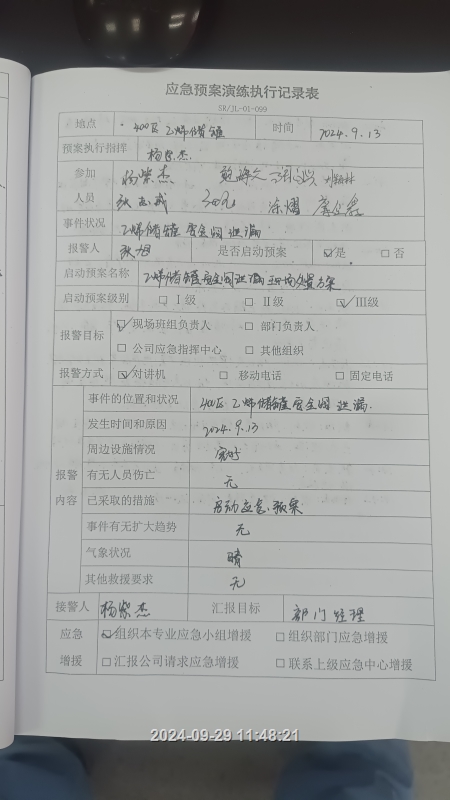 应急预案演练执行记录表
SR/JL-01-099
地点 400区乙烯储罐 时间 2024.9.13
预案执行指挥 杨紫杰
参加 杨紫杰
人员
事件状况 乙烯储罐安全阀泄漏
报警人 是否启动预案 ☑是 □否
启动预案名称 乙烯储罐安全阀泄漏现场处置方案
启动预案级别 □Ⅰ级 □Ⅱ级 ☑Ⅲ级
报警目标 ☑现场班组负责人 □部门负责人
□公司应急指挥中心 □其他组织
报警方式 ☑对讲机 □移动电话 □固定电话
事件的位置和状况 400区乙烯储罐安全阀泄漏
发生时间和原因 2024.9.13
周边设施情况 完好
报警 有无人员伤亡 无
内容 已采取的措施 启动应急预案
事件有无扩大趋势 无
气象状况 晴
其他救援要求 无
接警人 杨紫杰 汇报目标 部门经理
应急 ☑组织本专业应急小组增援 □组织部门应急增援
增援 □汇报公司请求应急增援 □联系上级应急中心增援
2024-09-29 11:48:21